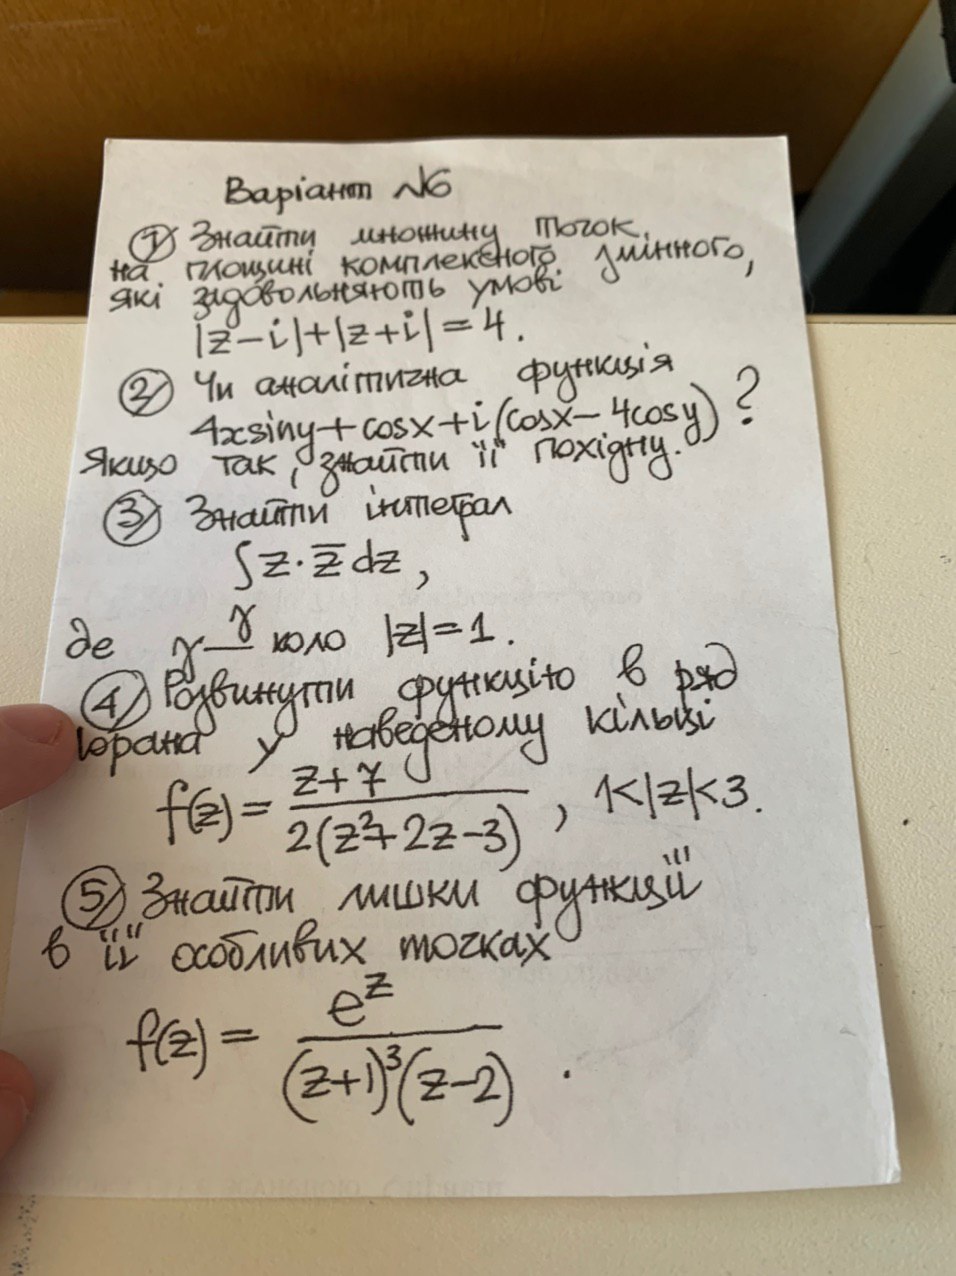 Варіант №6
① Знайти множину точок
на площині комплексного змінного,
які задовольняють умові
|z-i|+|z+i|=4.
② Чи аналітична функція
4xsiny+cosx+i(cosx-4cosy)?
Якщо так, знайти її похідну.
③ Знайти інтеграл
∫z·z̅dz,
γ
де γ — коло |z|=1.
④ Розвинути функцію в ряд
Лорана у наведеному кільці
f(z) = (z+7)/(2(z²+2z-3)), 1<|z|<3.
⑤ Знайти лишки функції
в її особливих точках
f(z) = e^z/((z+1)³(z-2)).